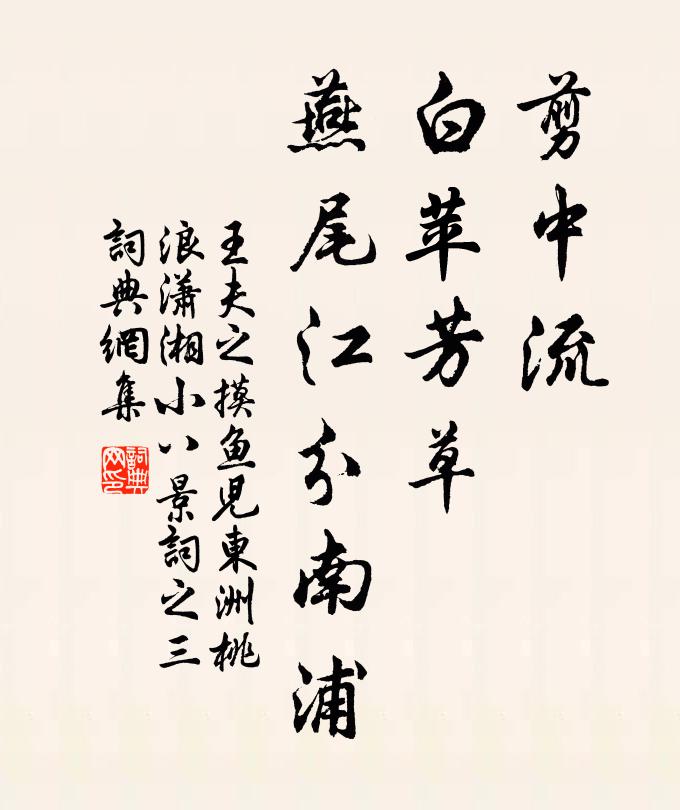 剪中流
白苹芳草
燕尾江分南浦
王夫之摸鱼児東洲桃
浪瀟湘小八景詞之三
詞典網集
詞典网印